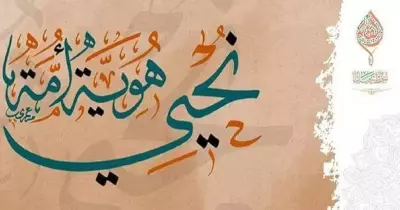 نُحيي
هُويّة أُمّة